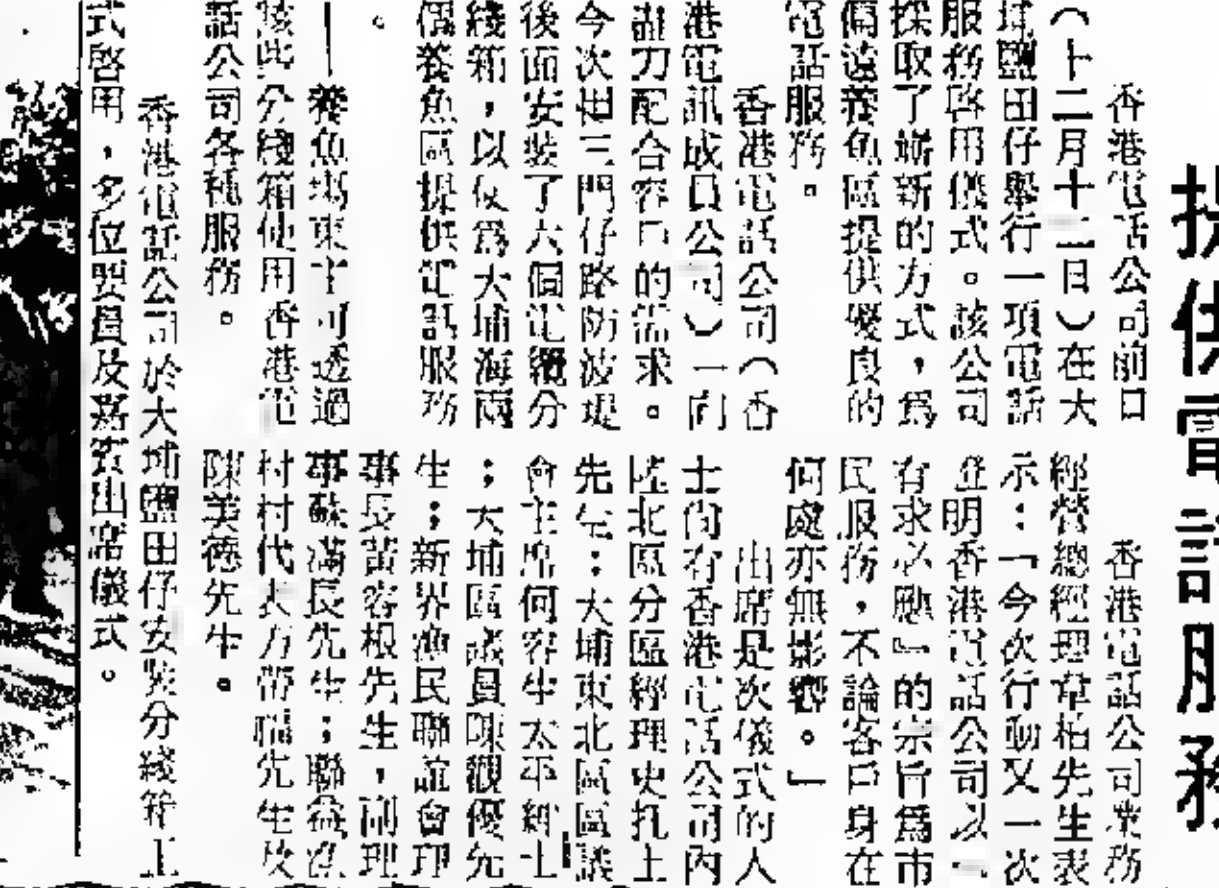 提供電話服務
香港電話公司前日
（十二月十二日）在大
埔鹽田仔舉行一項電話
服務啓用儀式。該公司
採取了嶄新的方式，爲
偏遠養魚區提供優良的
電話服務。
香港電話公司（香
港電訊成員公司）一向
盡力配合客戶的需求。
今次在三門仔路防波堤
後面安裝了六個電纜分
綫箱，以便爲大埔海兩
個養魚區提供電話服務
。
——養魚塲東主可透過
該此分綫箱使用香港電
話公司各種服務。
香港電話公司業務
經營總經理韋柏先生表
示：「今次行動又一次
證明香港電話公司以『
有求必應』的宗旨爲市
民服務，不論客戶身在
何處亦無影響。」
出席是次儀式的人
士尚有香港電話公司內
陸北區分區經理史扎士
先生；大埔東北區區議
會主席何容生太平紳士
；大埔區議員陳觀優先
生；新界漁民聯誼會理
事長黃容根先生，副理
事蘇滿長先生；聯益漁
村村代表方帶福先生及
陳美德先生。
香港電話公司於大埔鹽田仔安裝分綫箱正
式啓用，多位要員及嘉賓出席儀式。